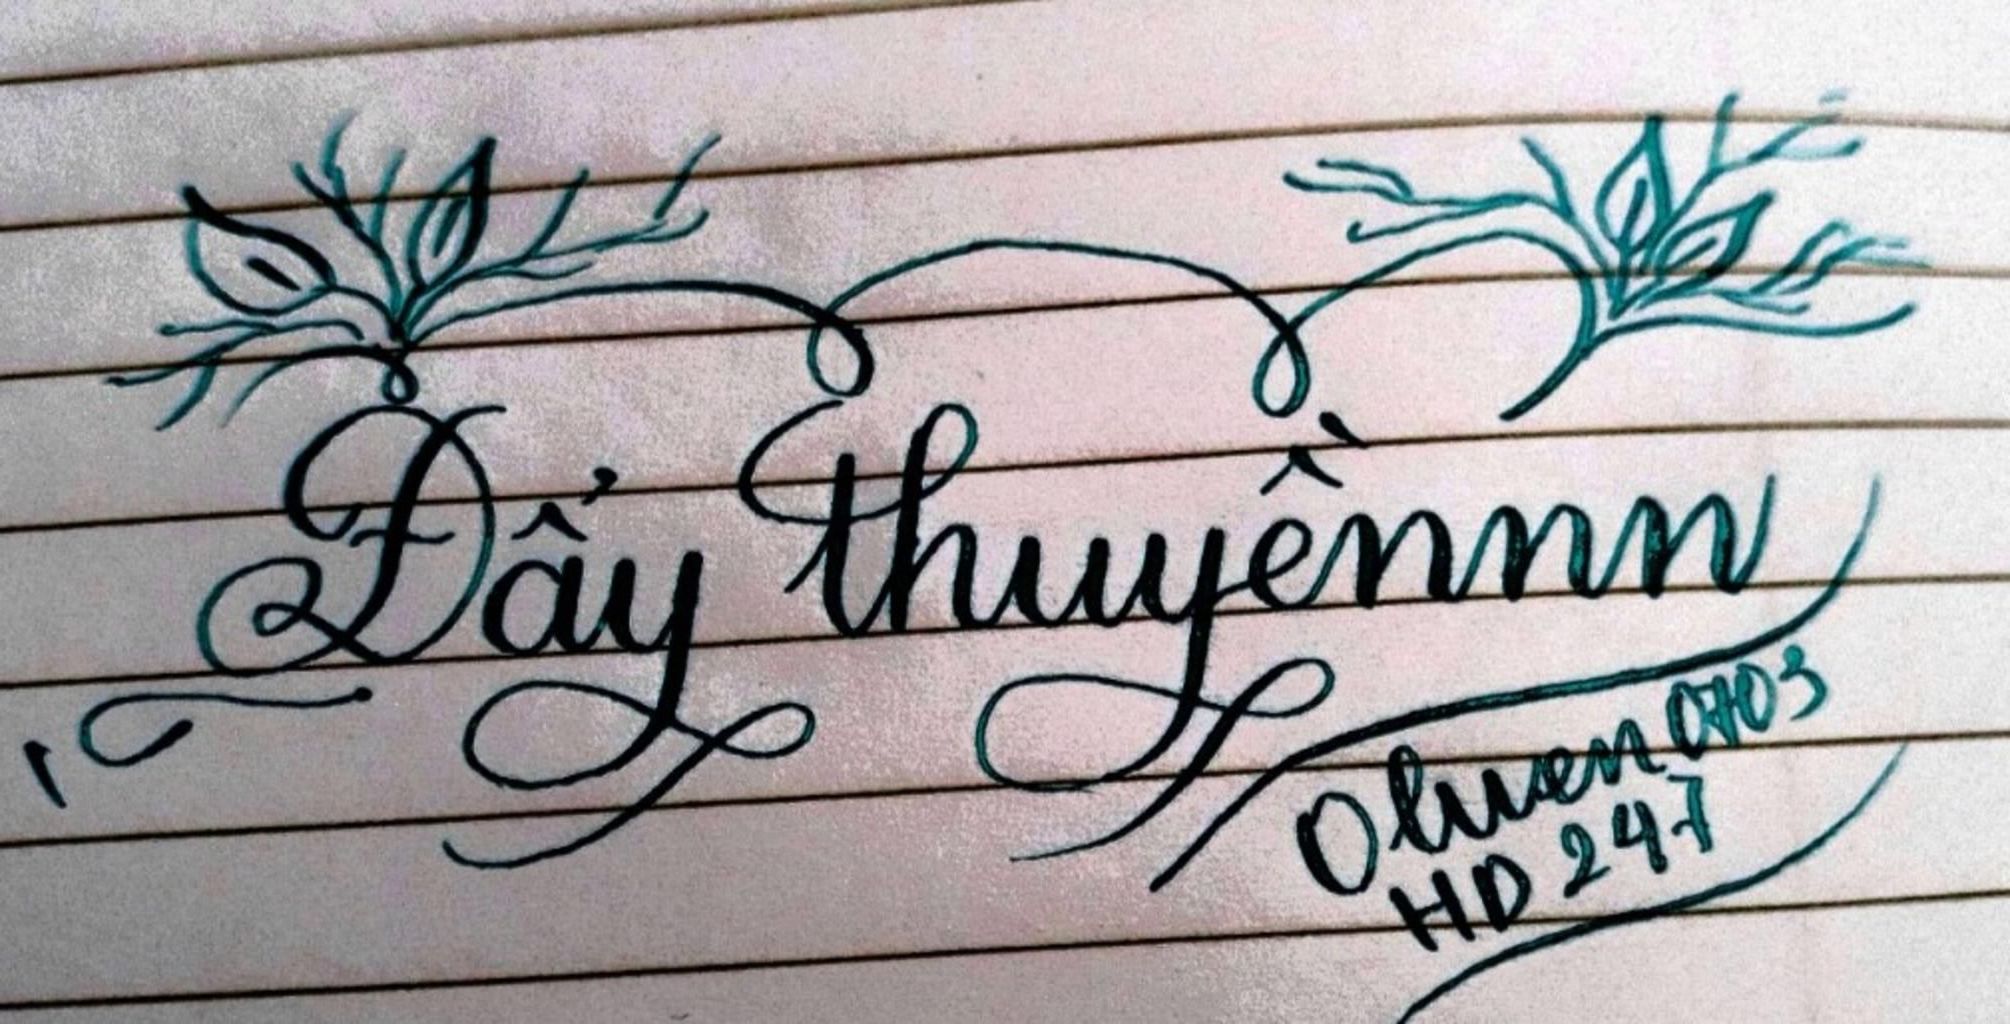 Đẩy thuyềnnn
Oliwen 0703
HD 247